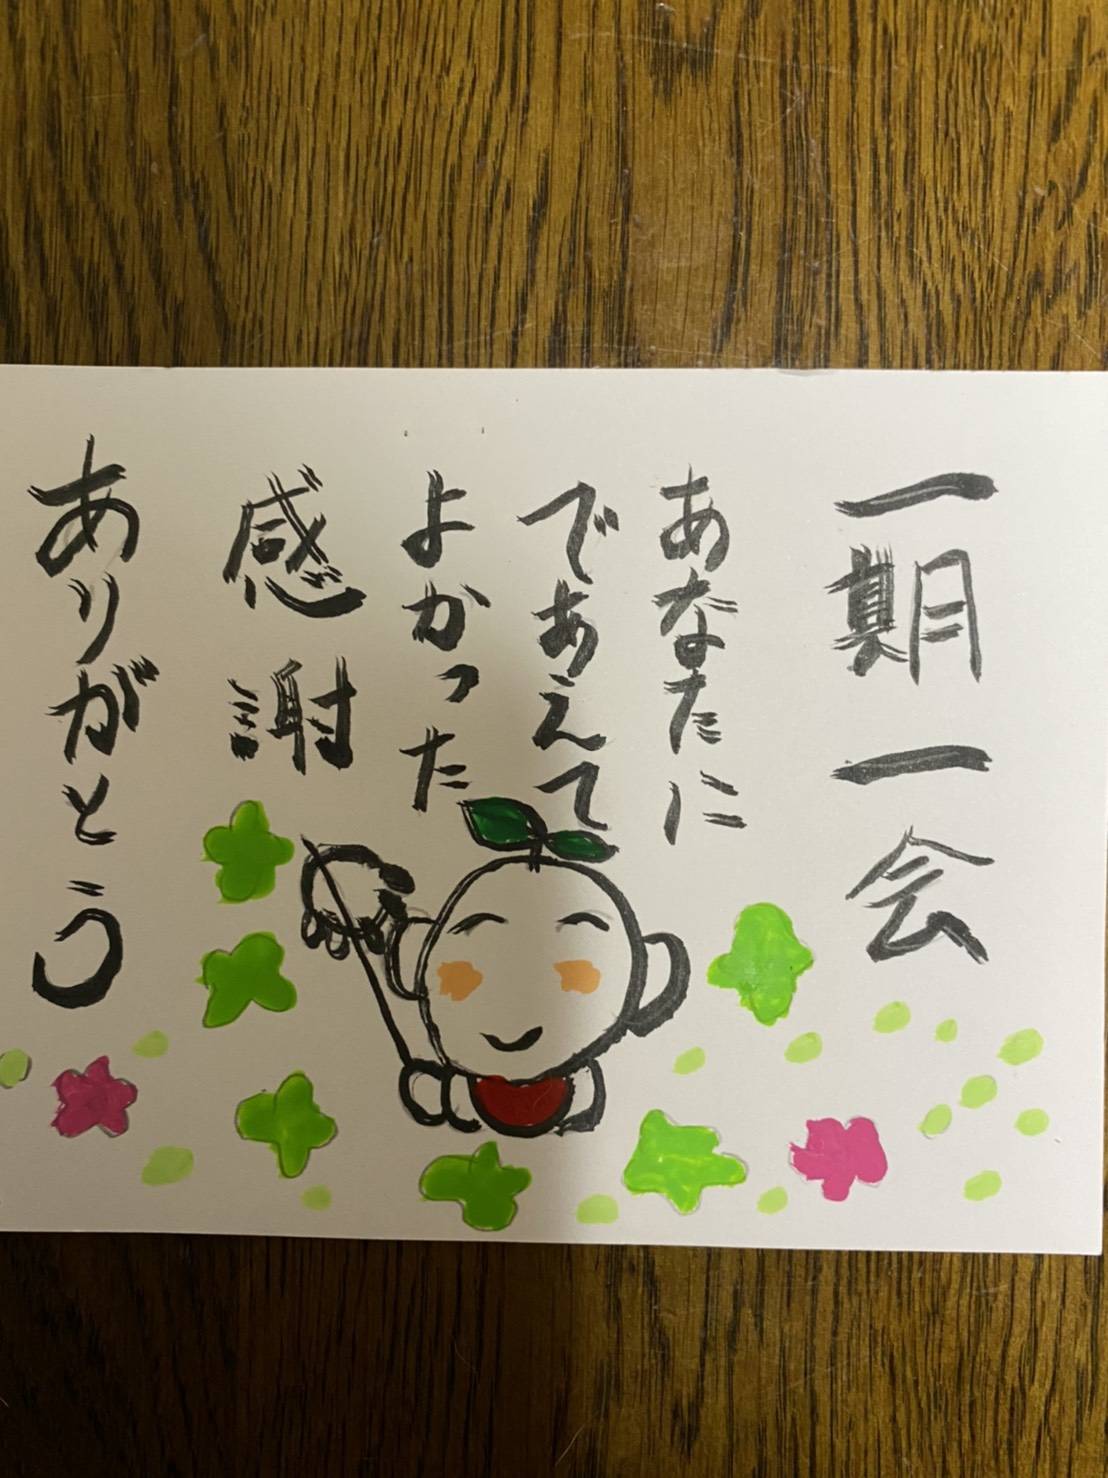 一期一会
あなたに
であえて
よかった
感謝
ありがとう